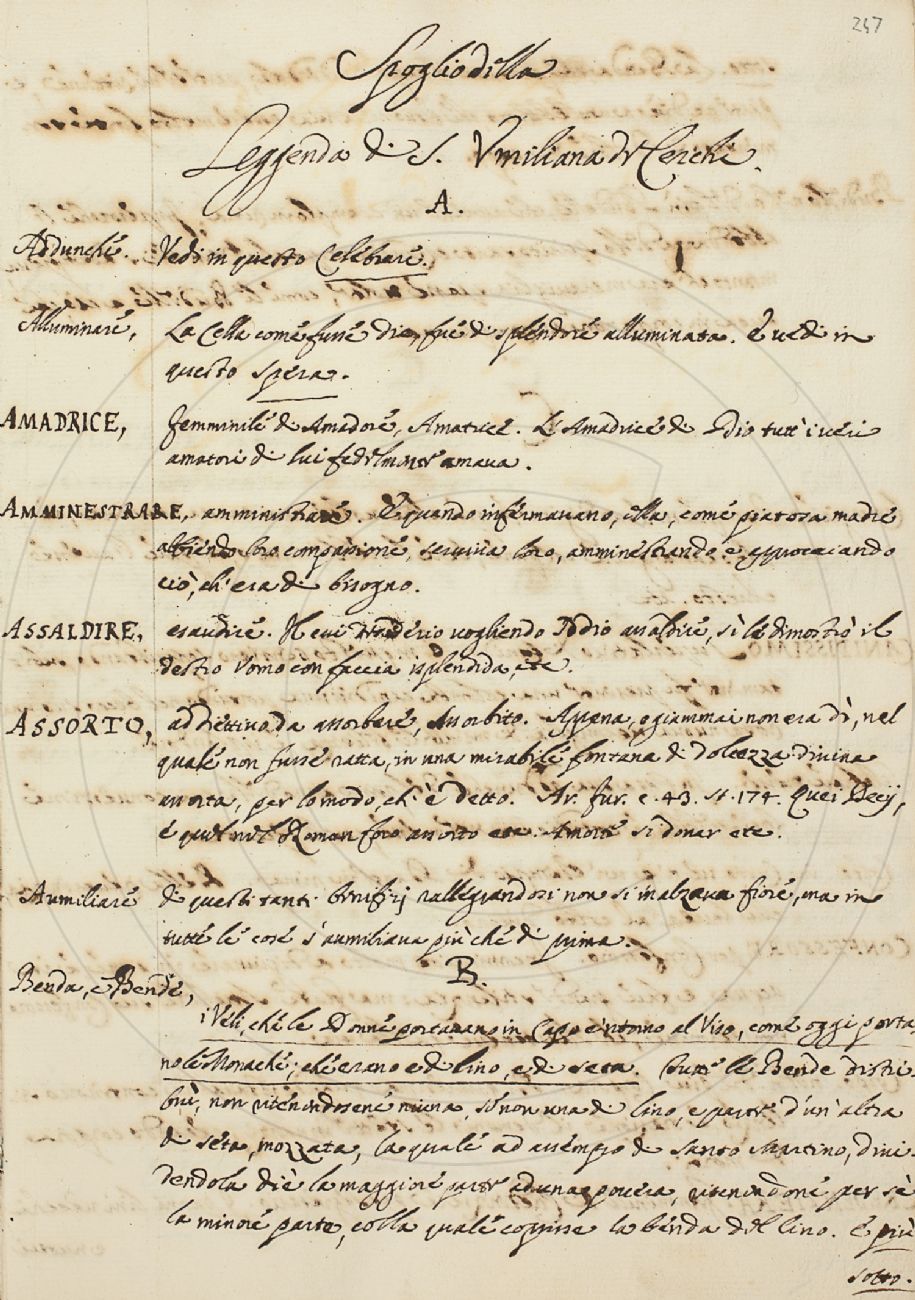 247
Spoglio della
Leggenda di S. Umiliana de Cerchi.
A.
Addunche. Vedi in questo Celebrare.
Alluminare, La Cella come fusse die, fue di splendore alluminata. E vedi in
questo spera.
AMADRICE, femminile di Amadore, Amatrice. L'Amadrice di Dio tutt'i veri
amatori di lui fedelmente amava.
AMMINESTRARE, amministrare. E quando infermavano, ella, come piatosa madre
abbiendo loro compassione, serviva loro, amminestrando e approcciando
ciò, ch'era di bisogno.
ASSALDIRE, esaudire. Il cui desiderio vogliendo Iddio assaldire, sì le dimostrò il
detto Uomo con faccia isplendida, etc.
ASSORTO, addiettivo da assorbere, Assorbito. Appena, o giammai non era dì, nel
quale non fusse ratta, in una mirabile fontana di dolcezza divina
assorta, per lo modo, ch'è detto. Ar. fur. c. 43. st. 174. Quei Decij,
e quel nel Roman foro assorto etc.
Aumiliare di questi tanti benifizj rallegrandosi non si inalzava fiore, ma in
tutte le cose s'aumiliava più che di prima.
B.
Benda, e Bende,
i Veli, che le Donne portavano in Capo e 'ntorno al Viso, come oggi porta,
no le Monache; che erano e di lino, e di seta. Tutte le Bende distri-
buì, non ritenendosene niuna, se non una di lino, e parte d'un'altra
di seta, mozzata, la quale ad assempro di Santo Martino, divi-
dendola diè la maggiore parte ad una povera, ritenendone per sè
la minore parte, colla quale coperse la benda del lino. E più
sotto.